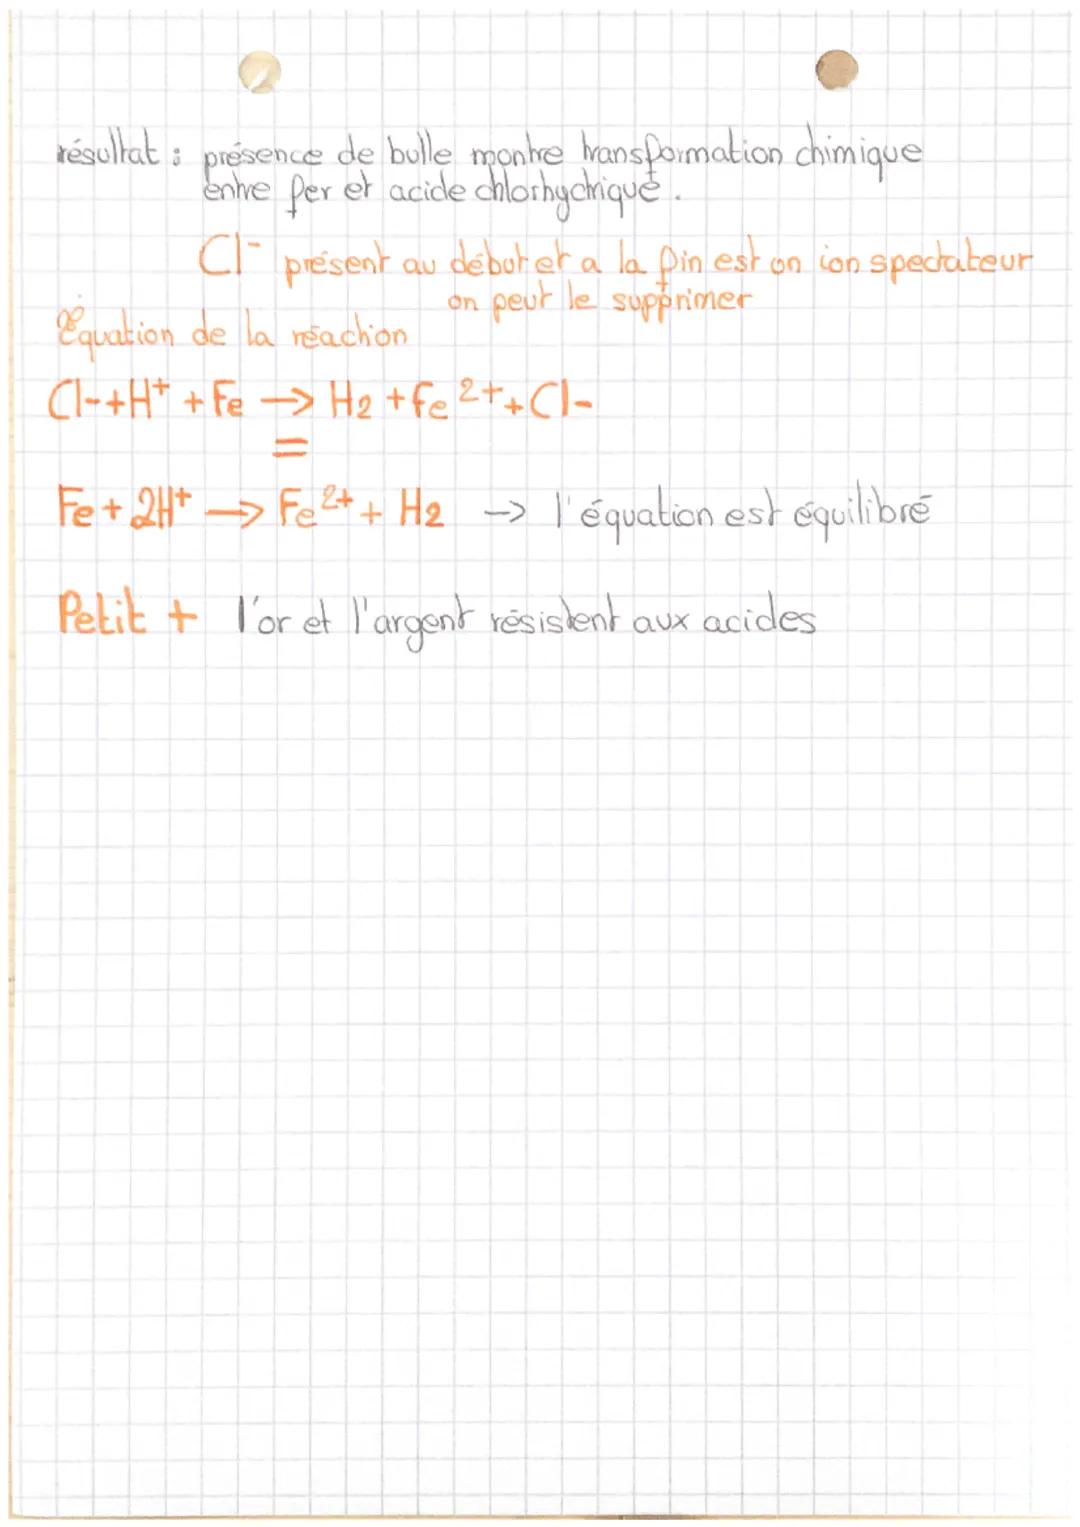 résultat : présence de bulle montre transformation chimique
entre fer et acide chlorhydrique.
Cl⁻ présent au début et a la fin est on ion spectateur
on peut le supprimer
Équation de la réaction
Cl-+H⁺ + Fe → H₂ + Fe ²⁺ + Cl-
=
Fe + 2H⁺ → Fe²⁺ + H₂ → l'équation est équilibré
Petit + l'or et l'argent résistent aux acides